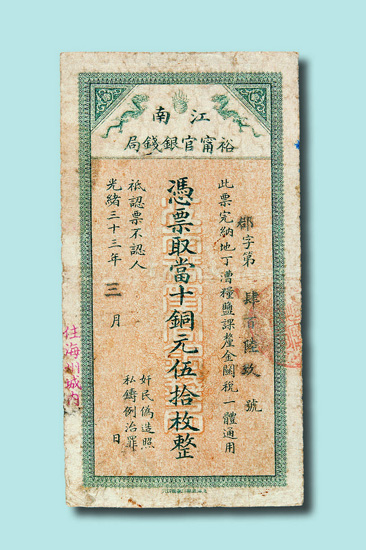 江南
裕甯官銀錢局
字第肆百陸玖號
此票完納地丁漕糧鹽課釐金關稅一體通用
憑票取當十銅元伍拾枚整
祗認票不認人
光緒三十三年三月日
奸民偽造照
私鑄例治罪
住海州城内